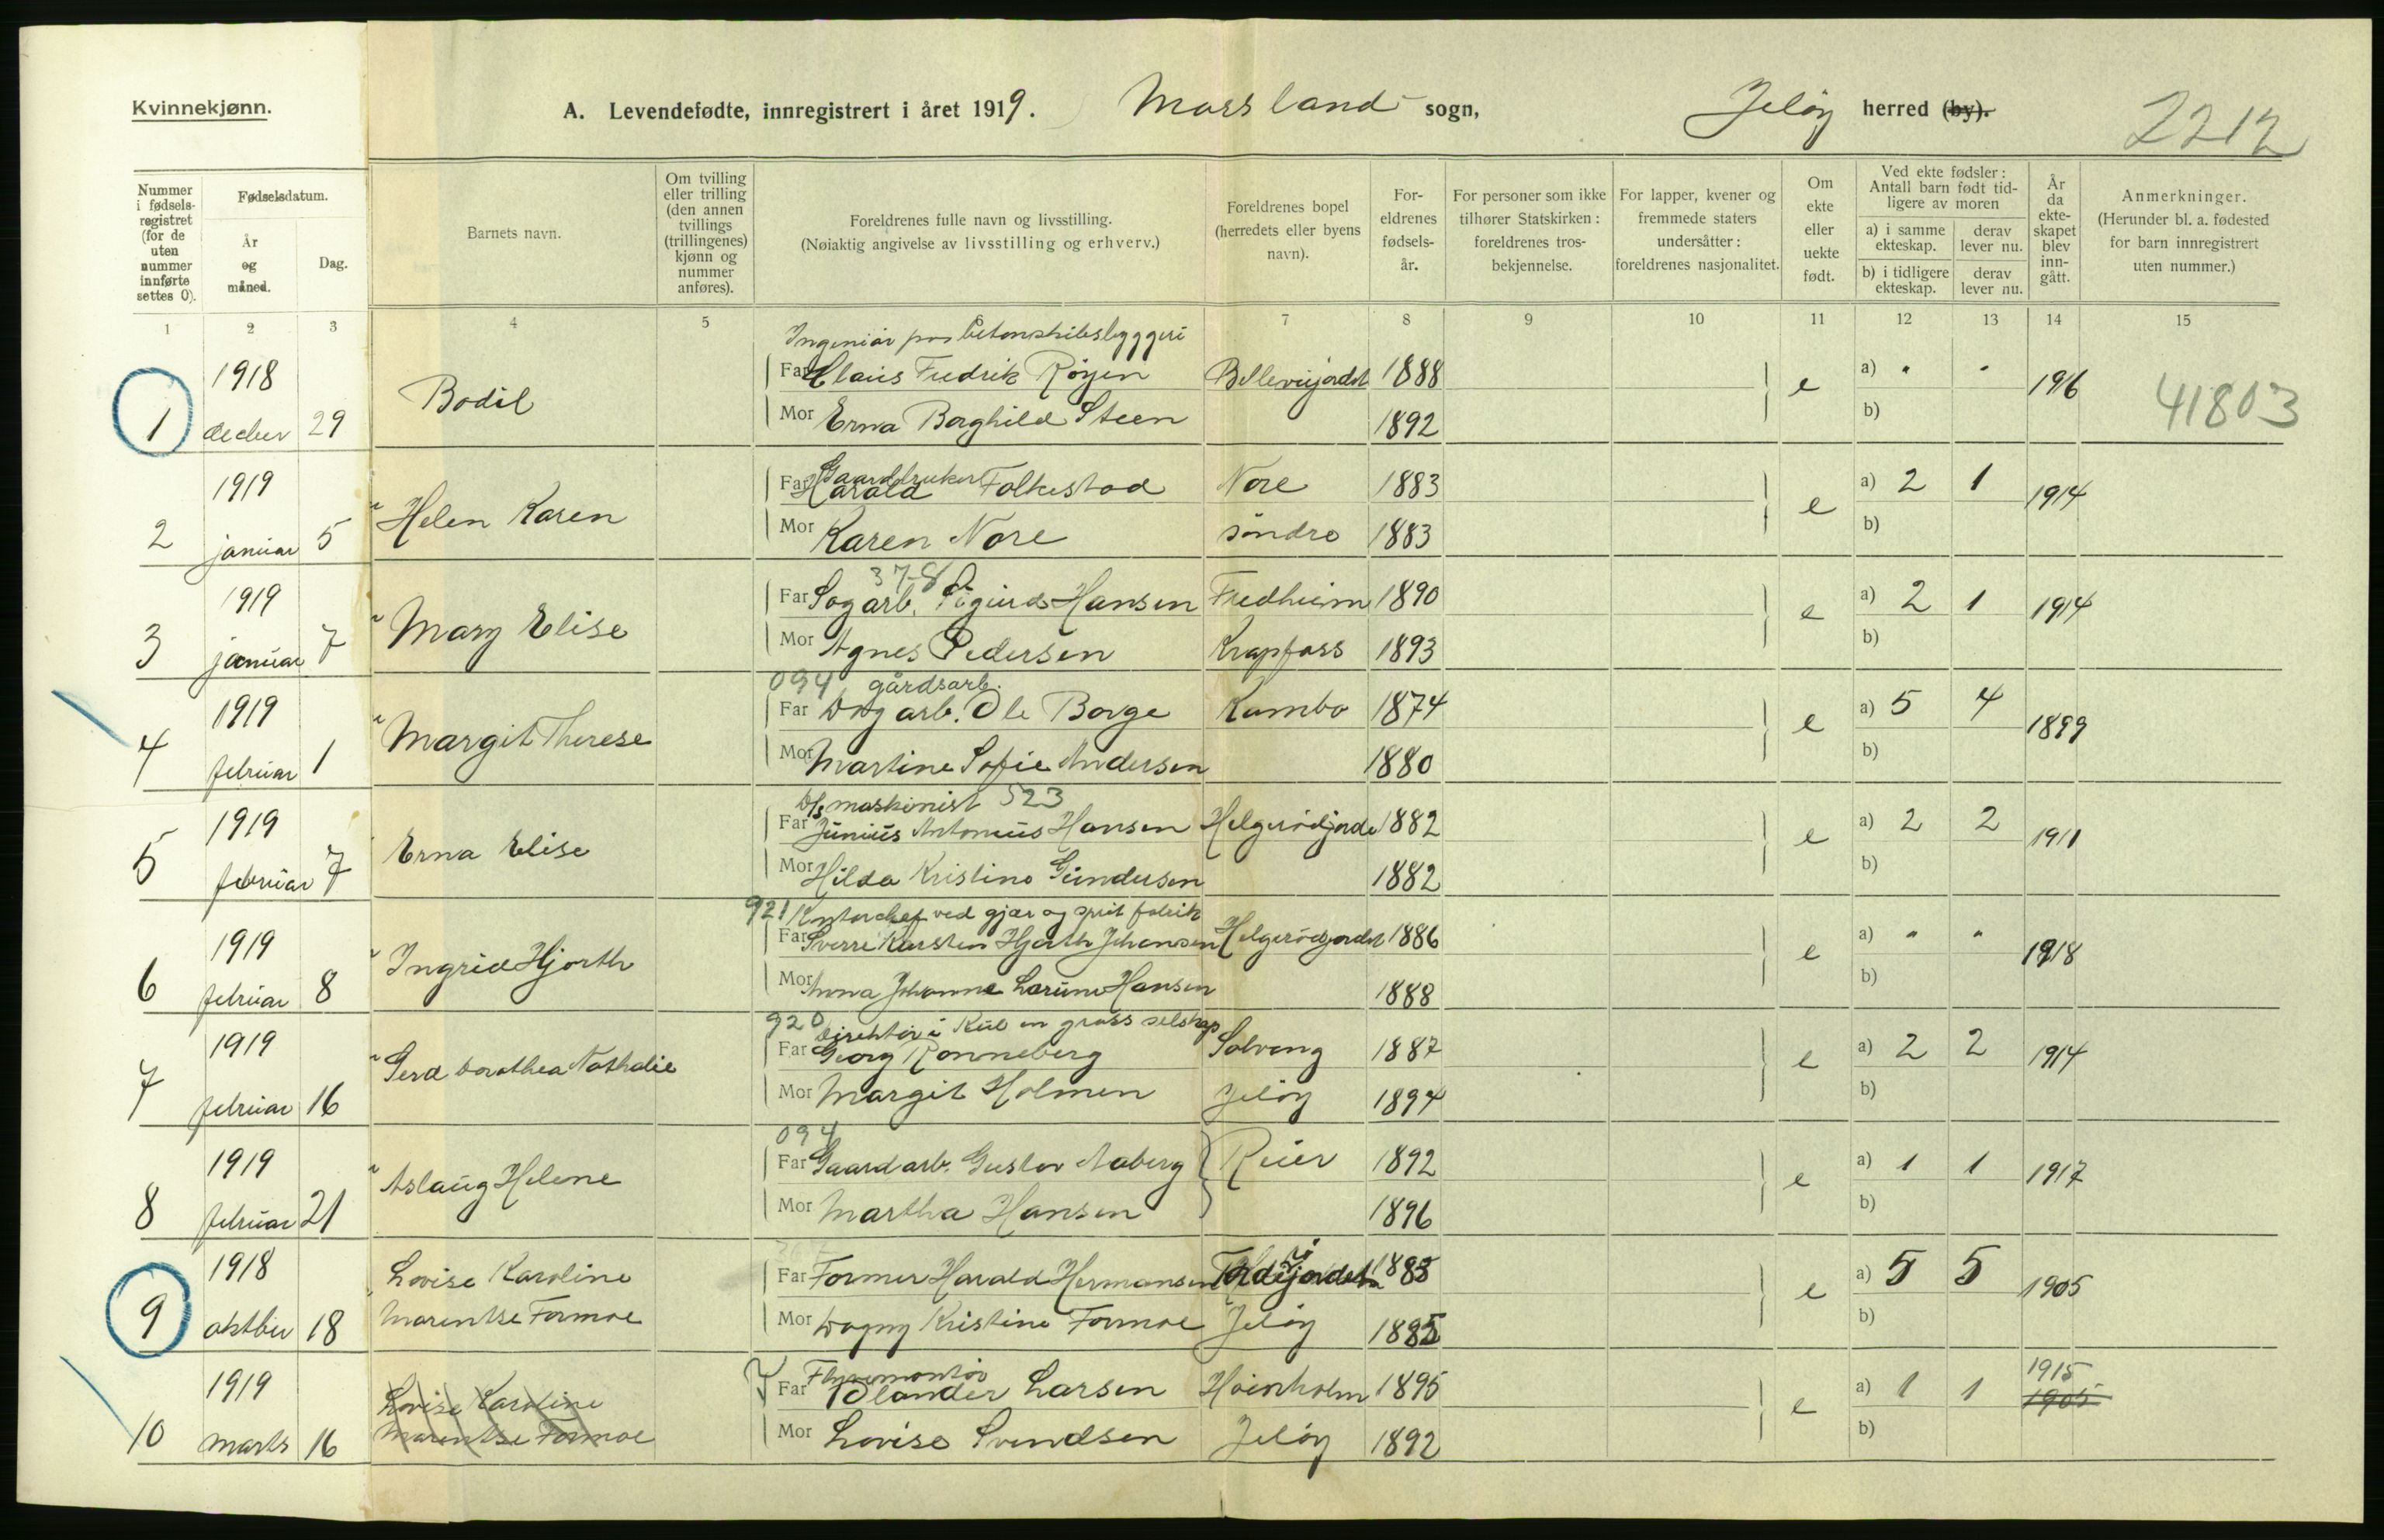 Kvinnekjønn.
A. Levendefødte, innregistrert i året 1919. Mossland sogn, Jeløy herred (by).
2212
Nummer i fødselsregistret (for de uten nummer innførte settes 0).
Fødselsdatum.
År og måned.
Dag.
Barnets navn.
Om tvilling eller trilling (den annen tvillings (trillingenes) kjønn og nummer anføres).
Foreldrenes fulle navn og livsstilling.
(Nøiaktig angivelse av livsstilling og erhverv.)
Foreldrenes bopel (herredets eller byens navn).
Foreldrenes fødselsår.
For personer som ikke tilhører Statskirken: foreldrenes trosbekjennelse.
For lapper, kvener og fremmede staters undersåtter: foreldrenes nasjonalitet.
Om ekte eller uekte født.
Ved ekte fødsler: Antall barn født tidligere av moren
a) i samme ekteskap. derav lever nu.
b) i tidligere ekteskap. derav lever nu.
År da ekteskapet blev inngått.
Anmerkninger.
(Herunder bl. a. fødested for barn innregistrert uten nummer.)
1 2 3 4 5 7 8 9 10 11 12 13 14 15
Ingeniør paa betonskibsbyggeri
1918 Far Claus Fredrik Røyen Bellevuejordet 1888 a) " "
1 decber 29 Bodil e 1916 41803
Mor Erna Borghild Steen 1892 b)
Gaardbruker
1919 Far Harald Folkestad Nore 1883 a) 2 1
2 januar 5 Helen Karen e 1914
Mor Karen Nore søndre 1883 b)
378
1919 Far Sagarb. Sigurd Hansen Fredheim 1890 a) 2 1
3 januar 7 Mary Elise e 1914
Mor Agnes Pedersen Krapfoss 1893 b)
094 gårdsarb.
1919 Far Dagarb. Ole Borge Kambo 1874 a) 5 4
4 februar 1 Margit Therese e 1899
Mor Martine Sofie Andersen 1880 b)
D/s maskinist 523
1919 Far Junius Antonius Hansen Helgerødjorde 1882 a) 2 2
5 februar 7 Erna Elise e 1911
Mor Hilda Kristine Gundersen 1882 b)
921 Kontorchef ved gjær og sprit fabrik
1919 Far Sverre Karsten Hjorth Johansen Helgerødjordet 1886 a) " "
6 februar 8 Ingrid Hjorth e 1918
Mor Anna Johanne Larune Hansen 1888 b)
920 Direktør i Kul en gross selskap
1919 Far Georg Rønneberg Solveng 1887 a) 2 2
7 februar 16 Gerd Dorothea Nathalie e 1914
Mor Margit Holmen Jeløy 1894 b)
094
1919 Far Gaardarb. Gustav Aaberg Reier 1892 a) 1 1
8 februar 21 Aslaug Helene e 1917
Mor Martha Hansen 1896 b)
1918 Lovise Karoline Far Former Harald Hermansen 1883 a) 5 5
9 oktber 18 Marentse Formoe e 1905
Mor Dagny Kristine Formoe Jeløy 1885 b)
Flyvemontør
1919 Lovise Karoline Far Olander Larsen Høienholm 1895 a) 1 1 1915
10 marts 16 Marentse Formoe e 1905
Mor Lovise Svendsen Jeløy 1892 b)